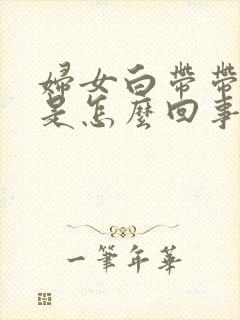 婦女白帶帶
是怎麼回事
一筆年華